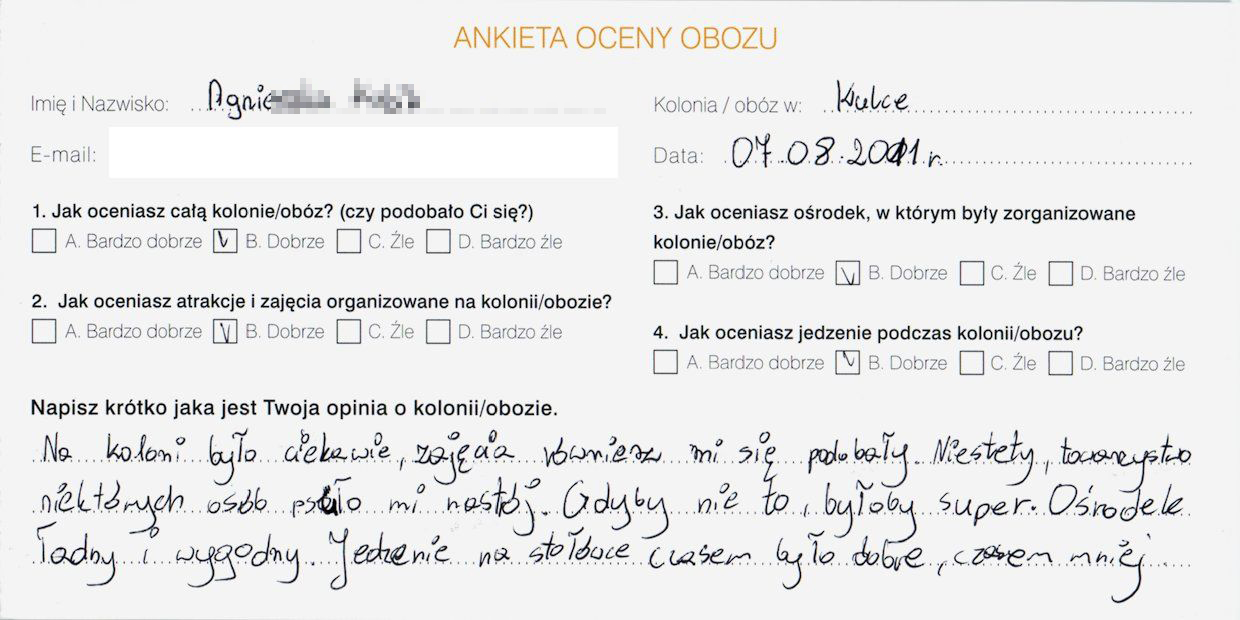 ANKIETA OCENY OBOZU
Imię i Nazwisko:
Kolonia / obóz w: Kulce
E-mail:
Data: 07.08.2011 r.
1. Jak oceniasz całą kolonie/obóz? (czy podobało Ci się?)
A. Bardzo dobrze B. Dobrze C. Źle D. Bardzo źle
2. Jak oceniasz atrakcje i zajęcia organizowane na kolonii/obozie?
A. Bardzo dobrze B. Dobrze C. Źle D. Bardzo źle
3. Jak oceniasz ośrodek, w którym były zorganizowane
kolonie/obóz?
A. Bardzo dobrze B. Dobrze C. Źle D. Bardzo źle
4. Jak oceniasz jedzenie podczas kolonii/obozu?
A. Bardzo dobrze B. Dobrze C. Źle D. Bardzo źle
Napisz krótko jaka jest Twoja opinia o kolonii/obozie.
Na koloni było ciekawie, zajęcia również mi się podobały. Niestety, towarzystwo
niektórych osób psuło mi nastój. Gdyby nie to, byłoby super. Ośrodek
ładny i wygodny. Jedzenie na stołówce czasem było dobre, czasem mniej.